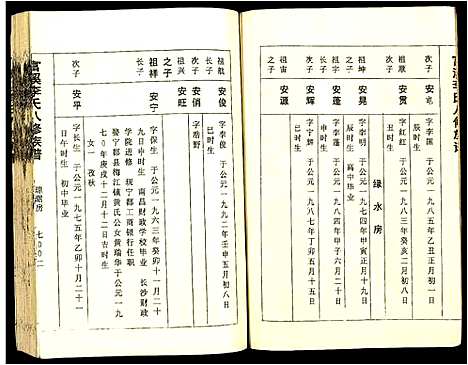 官溪李氏八修族谱
祖顺
次子
安贯
字红红 于公元一九八三年癸亥二月初二日
亥时生
绿水房
祖坤
长子
安晃
字李明 于公元一九七四年甲寅正月十日
辰时生 高中毕业
祖宇
次子
安蓬
字李蓬 于公元一九八四年甲子六月二日
辰时生
祖中
之子
安辉
字宁辉 于公元一九八七年丁卯五月十五日
巳时生
祖宙
之子
安源
祖航
次子
安俊
字李俊 于公元一九九二年壬申五月初八日
巳时生
次子
安俏
字皓野
祖兴
之子
安旺
祖祥
之子
安宁
字保生 于公元一九六三年癸卯十一月二十
九日申时生 南昌财政学校毕业 长沙财政
学院进修 抚宁郡工商银行任职
娶宁都县梅江镇黄氏公女黄瑞华于公元一九
七〇年庚戌十二月十二日吉时生
女一 孜秋
次子
安平
字长生 于公元一九七五年乙卯十月二十一
日午时生 初中毕业
官溪李氏八修族谱